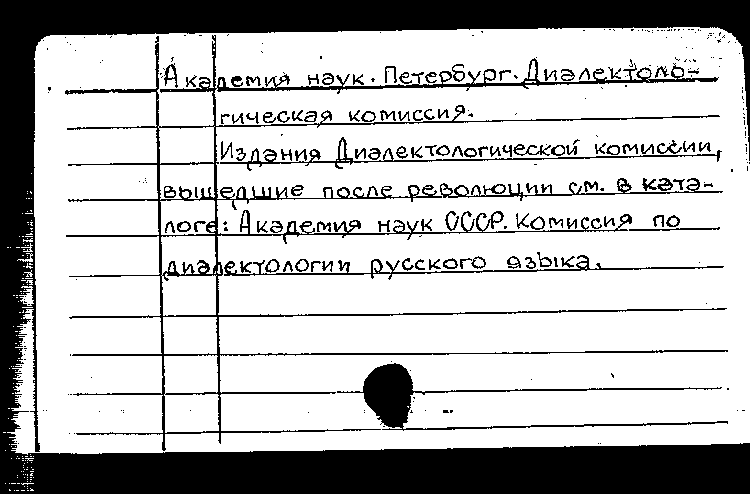 Академия наук. Петербург. Диалектоло-
гическая комиссия.
Издания Диалектологической комиссии,
вышедшие после революции см. в ката-
логе: Академия наук СССР. Комиссия по
диалектологии русского языка.